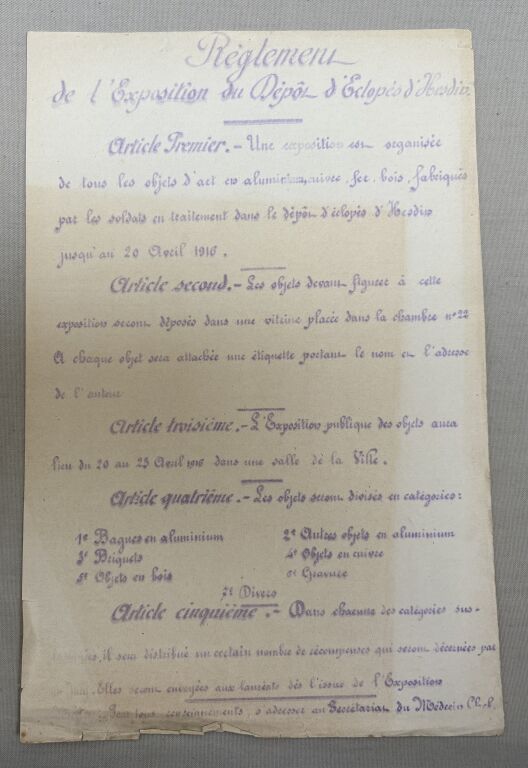 Réglement
de l'Exposition du Dépôt d'Eclopés d'Hesdin
Article Premier. - Une exposition est organisée
de tous les objets d'art en aluminium, cuivre, fer, bois, fabriqués
par les soldats en traitement dans le dépôt d'éclopés d'Hesdin
jusqu'au 20 Avril 1916.
Article second. - Les objets devant figurer à cette
exposition seront déposés dans une vitrine placée dans la chambre n° 22
A chaque objet sera attachée une étiquette portant le nom et l'adresse
de l'auteur
Article troisième. - L'Exposition publique des objets aura
lieu du 20 au 25 Avril 1916 dans une salle de la Ville.
Article quatrième. - Les objets seront divisés en catégories:
1° Bagues en aluminium 2° Autres objets en aluminium
3° Briquets 4° Objets en cuivre
5° Objets en bois 6° Gravure
7° Divers
Article cinquième. - Dans chacune des catégories sus-
il sera distribué un certain nombre de récompenses qui seront décernées par
Elles seront envoyées aux lauréats dès l'issue de l'Exposition
Pour tous renseignements, s'adresser au Secrétariat du Médecin Ch-f.